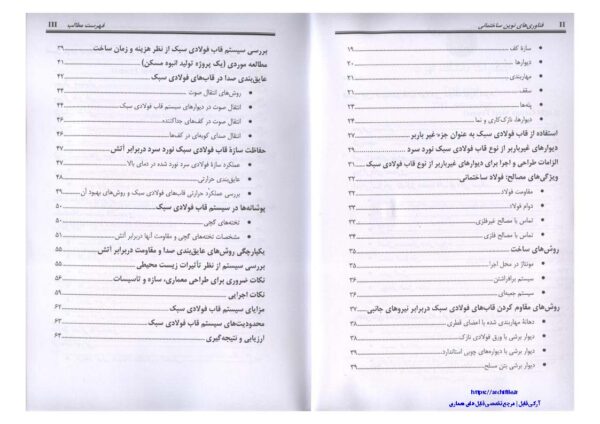 II فناوری‌های نوین ساختمانی
• سازهٔ کف ۱۹
• دیوارها ۲۰
• مهاربندی ۲۱
• سقف ۲۱
• پله‌ها ۲۴
• دیوارها، نازک‌کاری و نما ۲۴
استفاده از قاب فولادی سبک به عنوان جزء غیر باربر ۲۷
دیوارهای غیرباربر از نوع قاب فولادی سبک نورد سرد ۲۹
الزامات طراحی و اجرا برای دیوارهای غیرباربر از نوع قاب فولادی سبک ۳۱
ویژگی‌های مصالح: فولاد ساختمانی
• مقاومت فولاد ۳۲
• دوام فولاد
• تماس با مصالح غیرفلزی
• تماس با مصالح فلزی
روش‌های ساخت ۳۵
• مونتاژ در محل اجرا ۳۵
• سیستم برافراشتن ۳۶
• سیستم جعبه‌ای ۳۶
روش‌های مقاوم کردن قاب‌های فولادی سبک دربرابر نیروهای جانبی ۳۷
• دهانهٔ مهاربندی شده با اعضای قطری ۳۸
• دیوار برشی با ورق فولادی نازک ۳۸
• دیوار برشی با دیواره‌های چوبی استاندارد ۳۹
• دیوار برشی بتن مسلح ۳۹
https://archifile.ir
آرکی فایل | مرجع تخصصی فایل های معماری
فهرست مطالب III
بررسی سیستم قاب فولادی سبک از نظر هزینه و زمان ساخت ۳۹
مطالعه موردی (یک پروژه تولید انبوه مسکن) ۴۱
عایق‌بندی صدا در قاب‌های فولادی سبک ۴۲
• روش‌های انتقال صوت ۴۴
• انتقال صوت در دیوارهای سیستم قاب فولادی سبک ۴۴
• انتقال صوت در کف‌های جداکننده ۴۶
• انتقال صدای کوبه‌ای در کف‌ها ۴۶
حفاظت سازهٔ قاب فولادی سبک نورد سرد دربرابر آتش ۴۷
• عملکرد سازهٔ فولادی سرد نورد شده در دمای بالا ۴۷
• عایق‌بندی حرارتی ۴۸
• بررسی عملکرد حرارتی قاب‌های فولادی سبک و روش‌های بهبود آن ۴۹
پوشانه‌ها در سیستم قاب فولادی سبک ۵۰
• تخته‌های گچی ۵۰
• مشخصات تخته‌های گچی و مقاومت آنها دربرابر آتش ۵۱
یکپارچگی روش‌های عایق‌بندی صدا و مقاومت دربرابر آتش ۵۵
بررسی سیستم از نظر تأثیرات زیست محیطی ۵۵
نکات ضروری برای طراحی معماری، سازه و تاسیسات ۵۶
نکات اجرایی ۵۹
مزایای سیستم قاب فولادی سبک ۶۲
محدودیت‌های سیستم قاب فولادی سبک ۶۳
ارزیابی و نتیجه‌گیری ۶۴